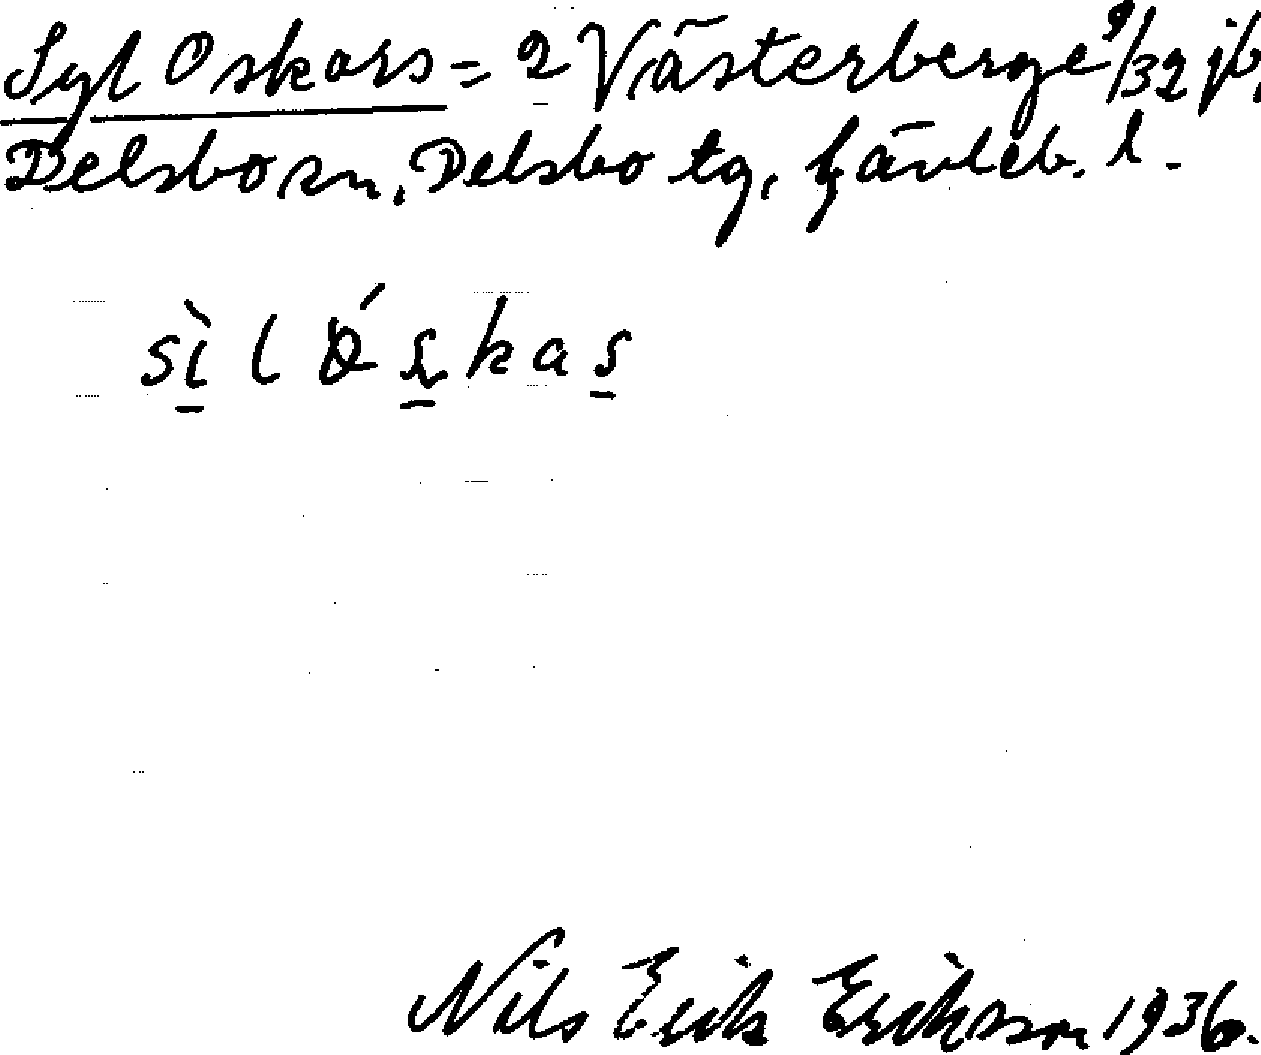 Syl Oskars = 2 Västerberge 9/32 jb,
Delsbo sn, Delsbo tg, Gävleb. l.
Nils Erik Eriksson 1936.